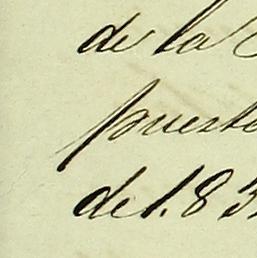 de la
puesto
de 1.83